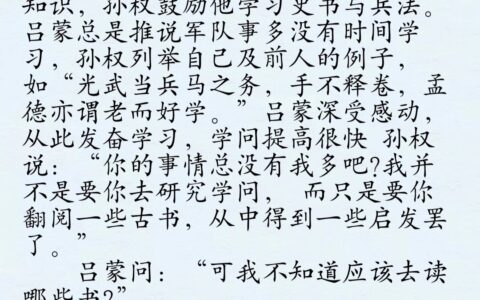 知识，孙权鼓励他学习史书与兵法。
吕蒙总是推说军队事多没有时间学
习，孙权列举自己及前人的例子，
如“光武当兵马之务，手不释卷，孟
德亦谓老而好学。”吕蒙深受感动，
从此发奋学习，学问提高很快 孙权
说：“你的事情总没有我多吧?我并
不是要你去研究学问， 而只是要你
翻阅一些古书，从中得到一些启发罢
了。”
吕蒙问：“可我不知道应该去读
哪些书?”